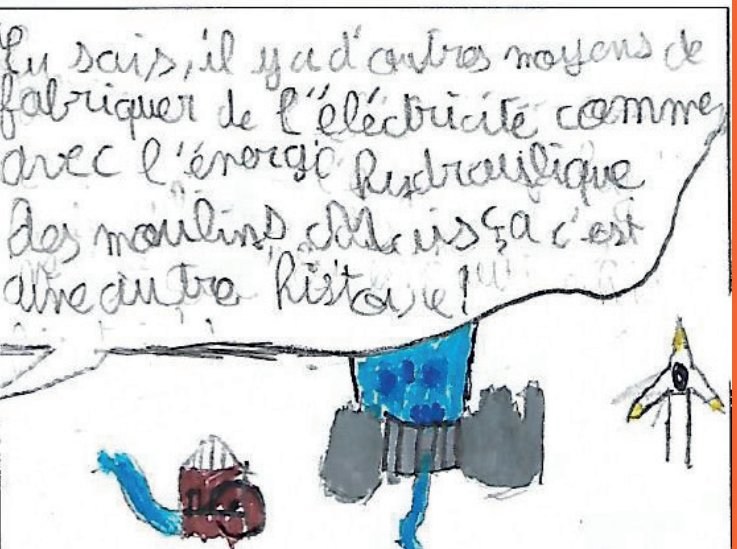 Tu sais, il y a d'autres moyens de
fabriquer de l'électricité comme
avec l'énergi hydraulique
des moulins. Mais ça c'est
une autre histoire!